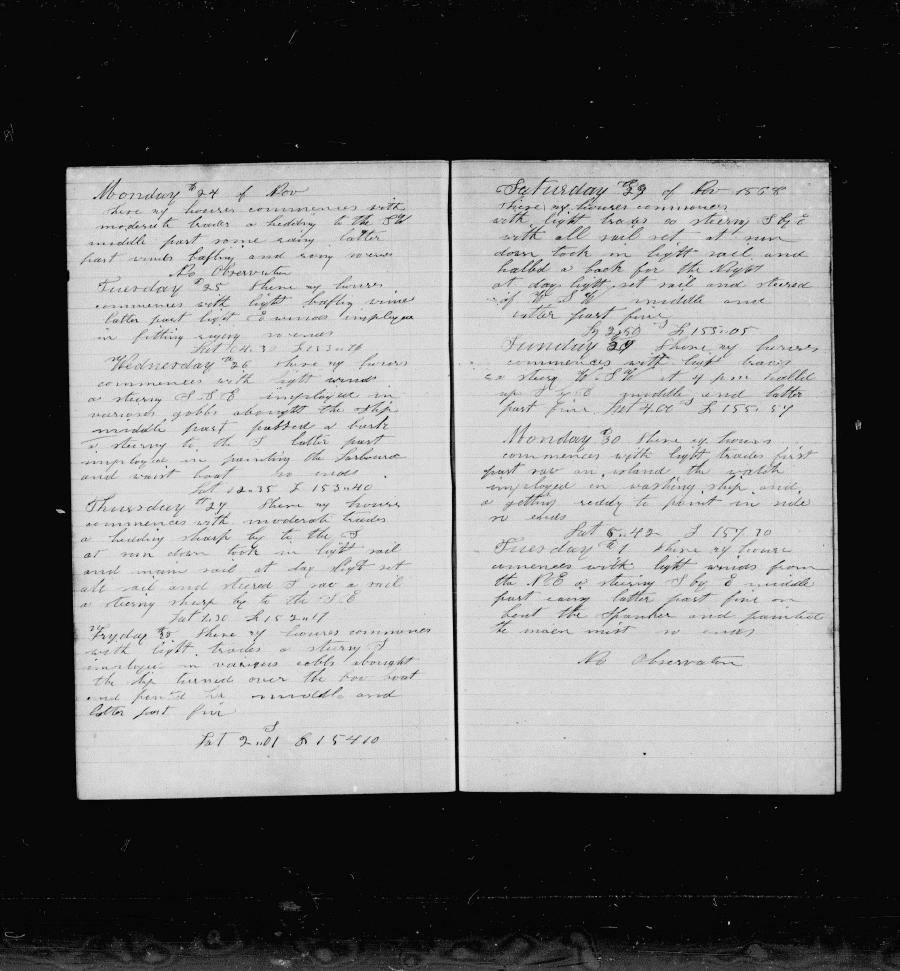 Monday th 24 of Nov
these 24 houres commences with
moderate trades a heding to the SW
middle part some rainy latter
part winds bafling and rainy
No Observation
Tuesday th 25 These 24 houres
commences with light bafling
latter part light E winds imployed
in fitting
Lat
Wednesday th 26 these 24 houres
commences with light winds
a steering S S E imployed in
varioses gobbs abought the ship
middle part passed a bark
a steering to the S latter part
imployed in painting the
and waist boat so ends
Lat 12"35 L 153"40
Thursday th 27 These 24 houres
commences with moderate trades
a heding sharp by to the S
at sun down took in light sail
and main sail at day light set
all sail and steered S saw a sail
a steering sharp by to the S E
Lat 1.30 L 152"11
Fryday th 28 These 24 houres commences
with light trades a steering S
imployed in varioses gobbs abought
the ship turned over the bow boat
and middle and
latter part fine
S
Lat 2"01 L 154 10
Saturday th 29 of Nov 1868
these 24 houres commences
with light trades a steering S by E
with all sail set at sun
down took in light sail and
halled a back for the Night
at day light set sail and steered
of W S W middle and
latter part fine
2"50 S L 155"05
Sunday 29 These 24 houres
commences with light
a steering W S W at 4 p m halled
up S by E middle and latter
part fine Lat 4.00 S L 155" 57
Monday th 30 these 24 hours
commences with light trades first
part saw an island the watch
imployed in washing ship and
a getting reddy to paint in side
so ends
Lat 5"42 L 157 30
Tuesday th 1 these 24 houre
comences with light winds from
the N E a steering S by E middle
part latter part fine
bent the Spanker and painted
the mast so ends
No Observation